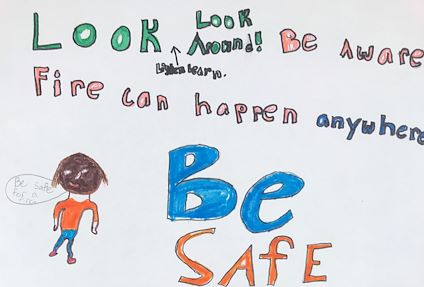 Look Look Around! Be aware
Listen learn.
Fire can happen anywhere
Be safe
for a
Be
Safe